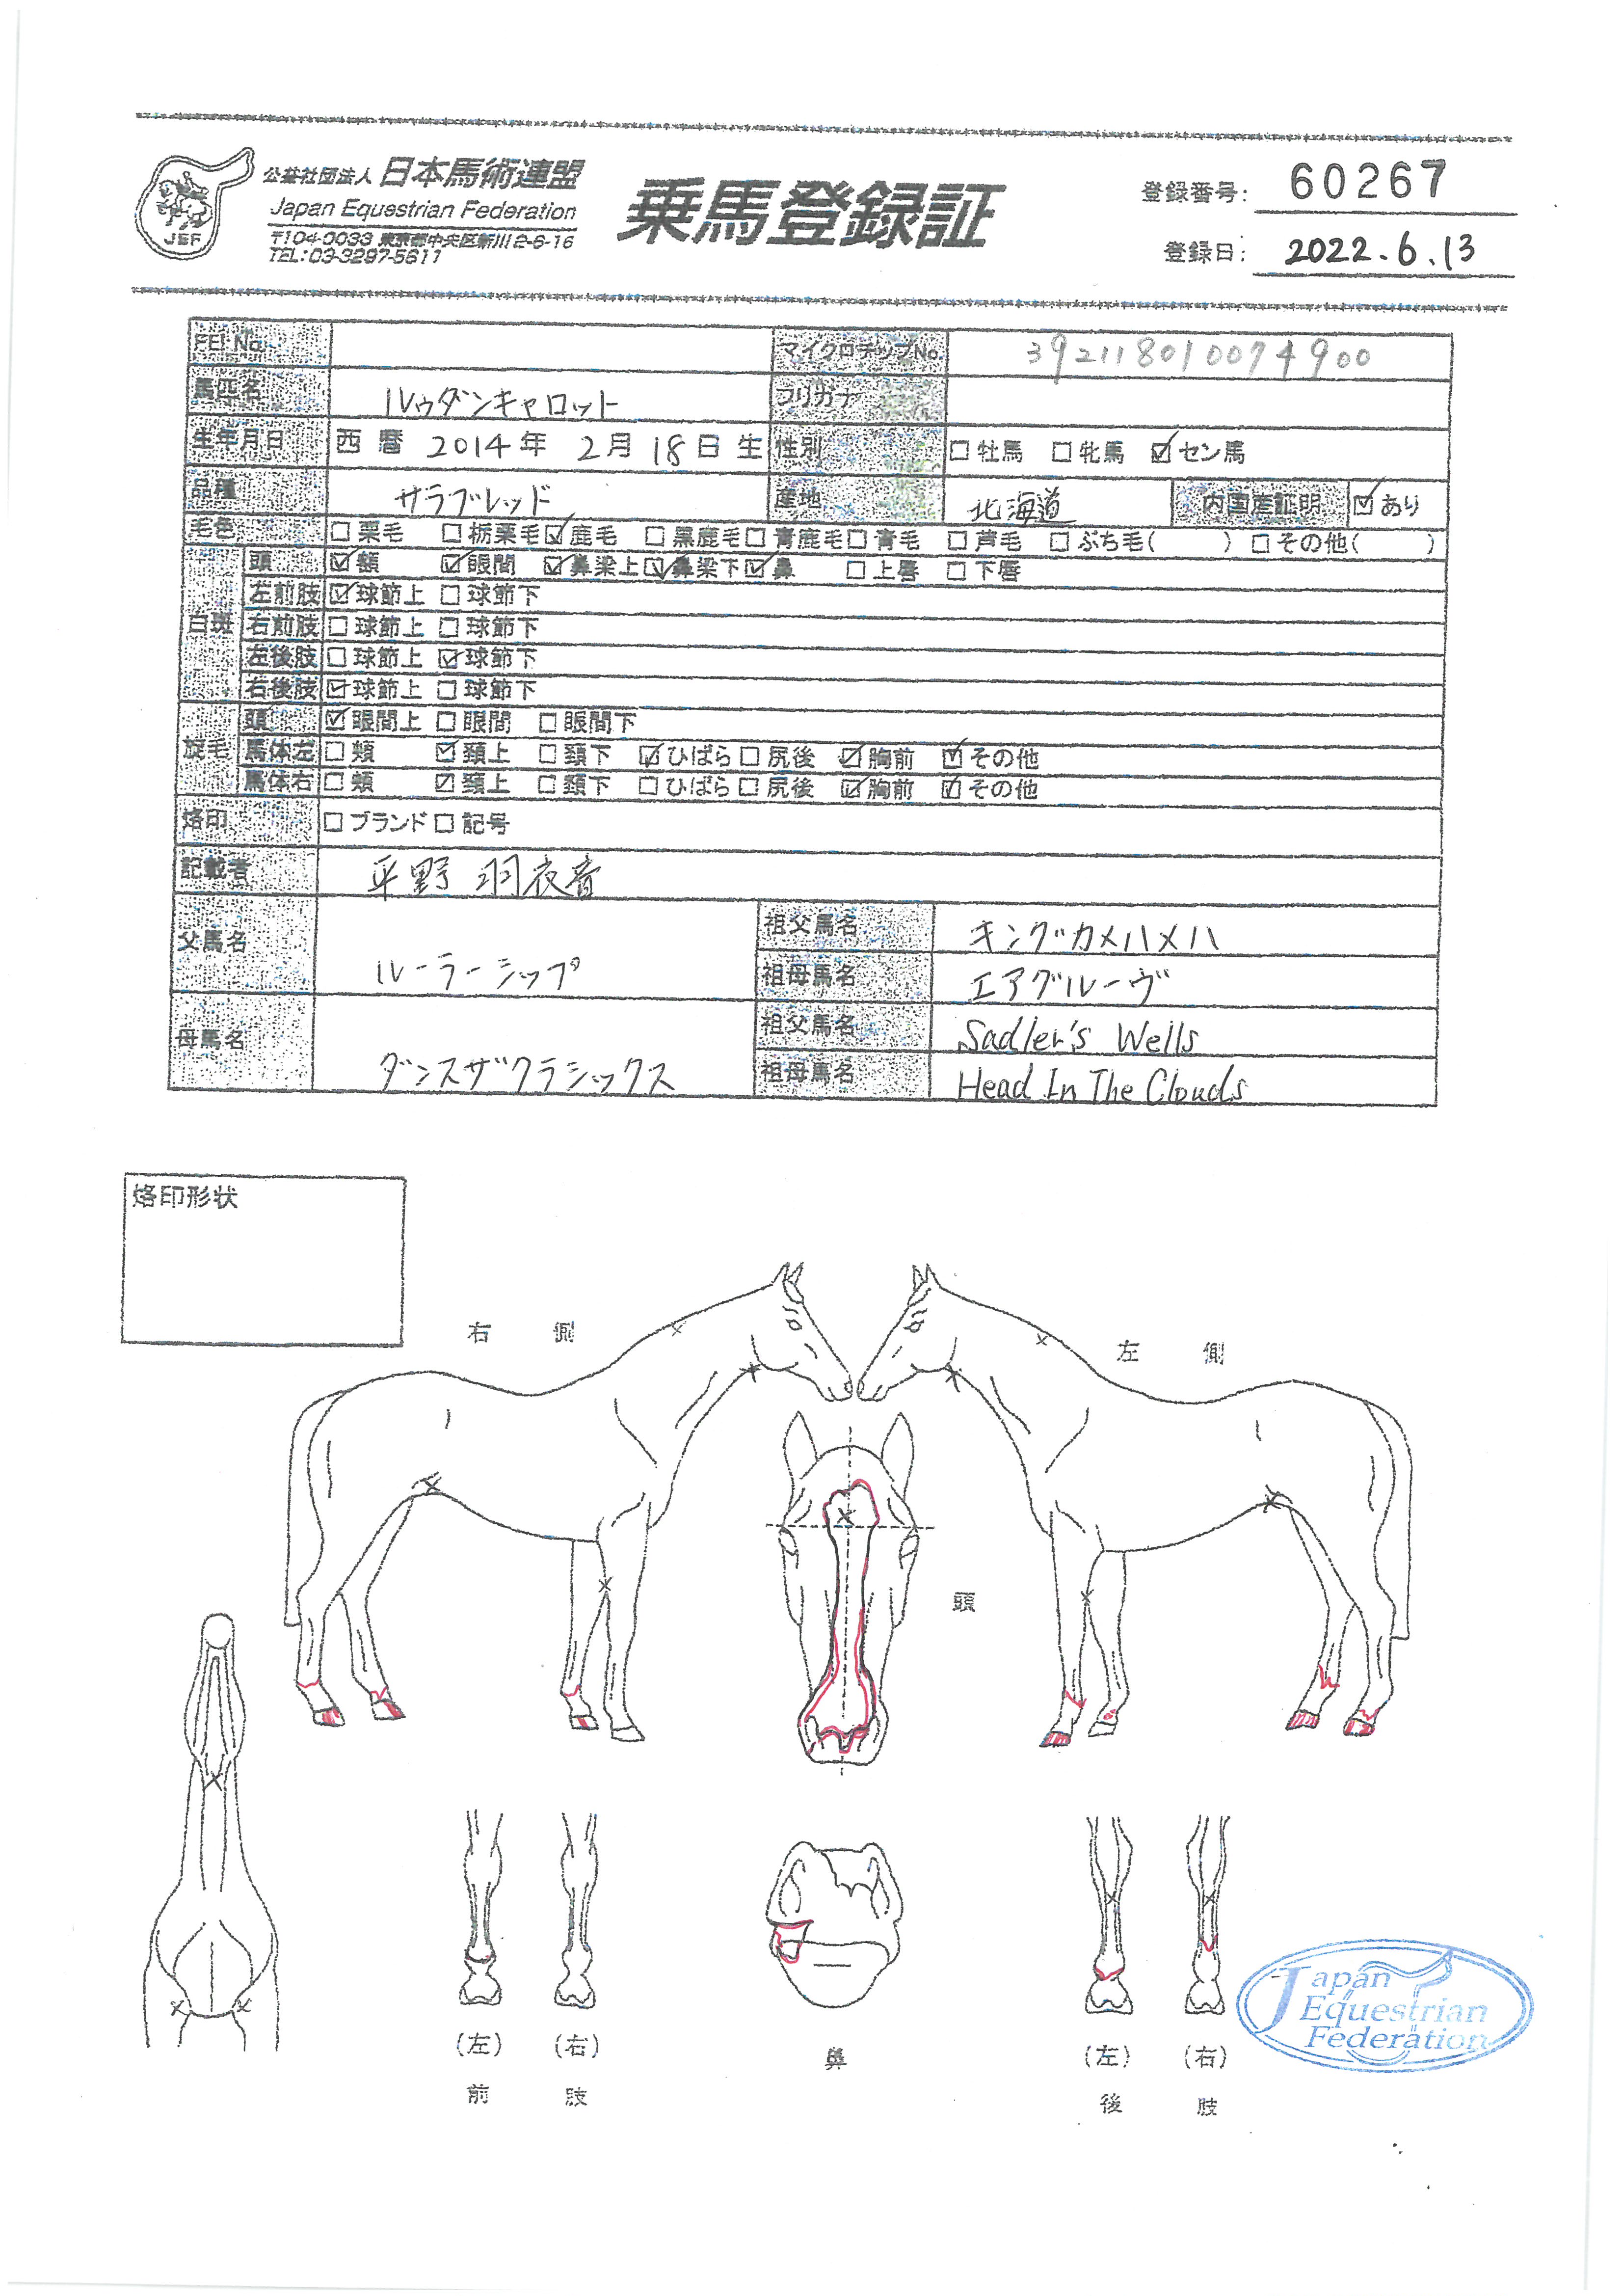 公益社団法人 日本馬術連盟
Japan Equestrian Federation
〒104-0033 東京都中央区新川2-6-16
TEL:03-3297-5611
JEF
乗馬登録証
登録番号: 60267
登録日: 2022.6.13
FEI No. マイクロチップNo. 392118010074900
馬匹名 ルゥダンキャロット フリガナ
生年月日 西暦 2014年 2月 18日 生 性別 □牡馬 □牝馬 ☑セン馬
品種 サラブレッド 産地 北海道 内国産証明 ☑あり
毛色 □栗毛 □栃栗毛 ☑鹿毛 □黒鹿毛 □青鹿毛 □青毛 □芦毛 □ぶち毛( ) □その他( )
白斑 頭 ☑額 ☑眼間 ☑鼻梁上 ☑鼻梁下 ☑鼻 □上唇 □下唇
左前肢 ☑球節上 □球節下
右前肢 □球節上 □球節下
左後肢 □球節上 ☑球節下
右後肢 ☑球節上 □球節下
旋毛 頭 ☑眼間上 □眼間 □眼間下
馬体左 □頬 ☑頚上 □頚下 ☑ひばら □尻後 ☑胸前 ☑その他
馬体右 □頬 ☑頚上 □頚下 □ひばら □尻後 ☑胸前 ☑その他
烙印 □ブランド □記号
記載者 平野 羽衣音
父馬名 ルーラーシップ 祖父馬名 キングカメハメハ
祖母馬名 エアグルーヴ
母馬名 ダンスザクラシックス 祖父馬名 Sadler's Wells
祖母馬名 Head In The Clouds
烙印形状
右 側
左 側
頭
(左) (右)
前 肢
鼻
(左) (右)
後 肢
Japan
Equestrian
Federation